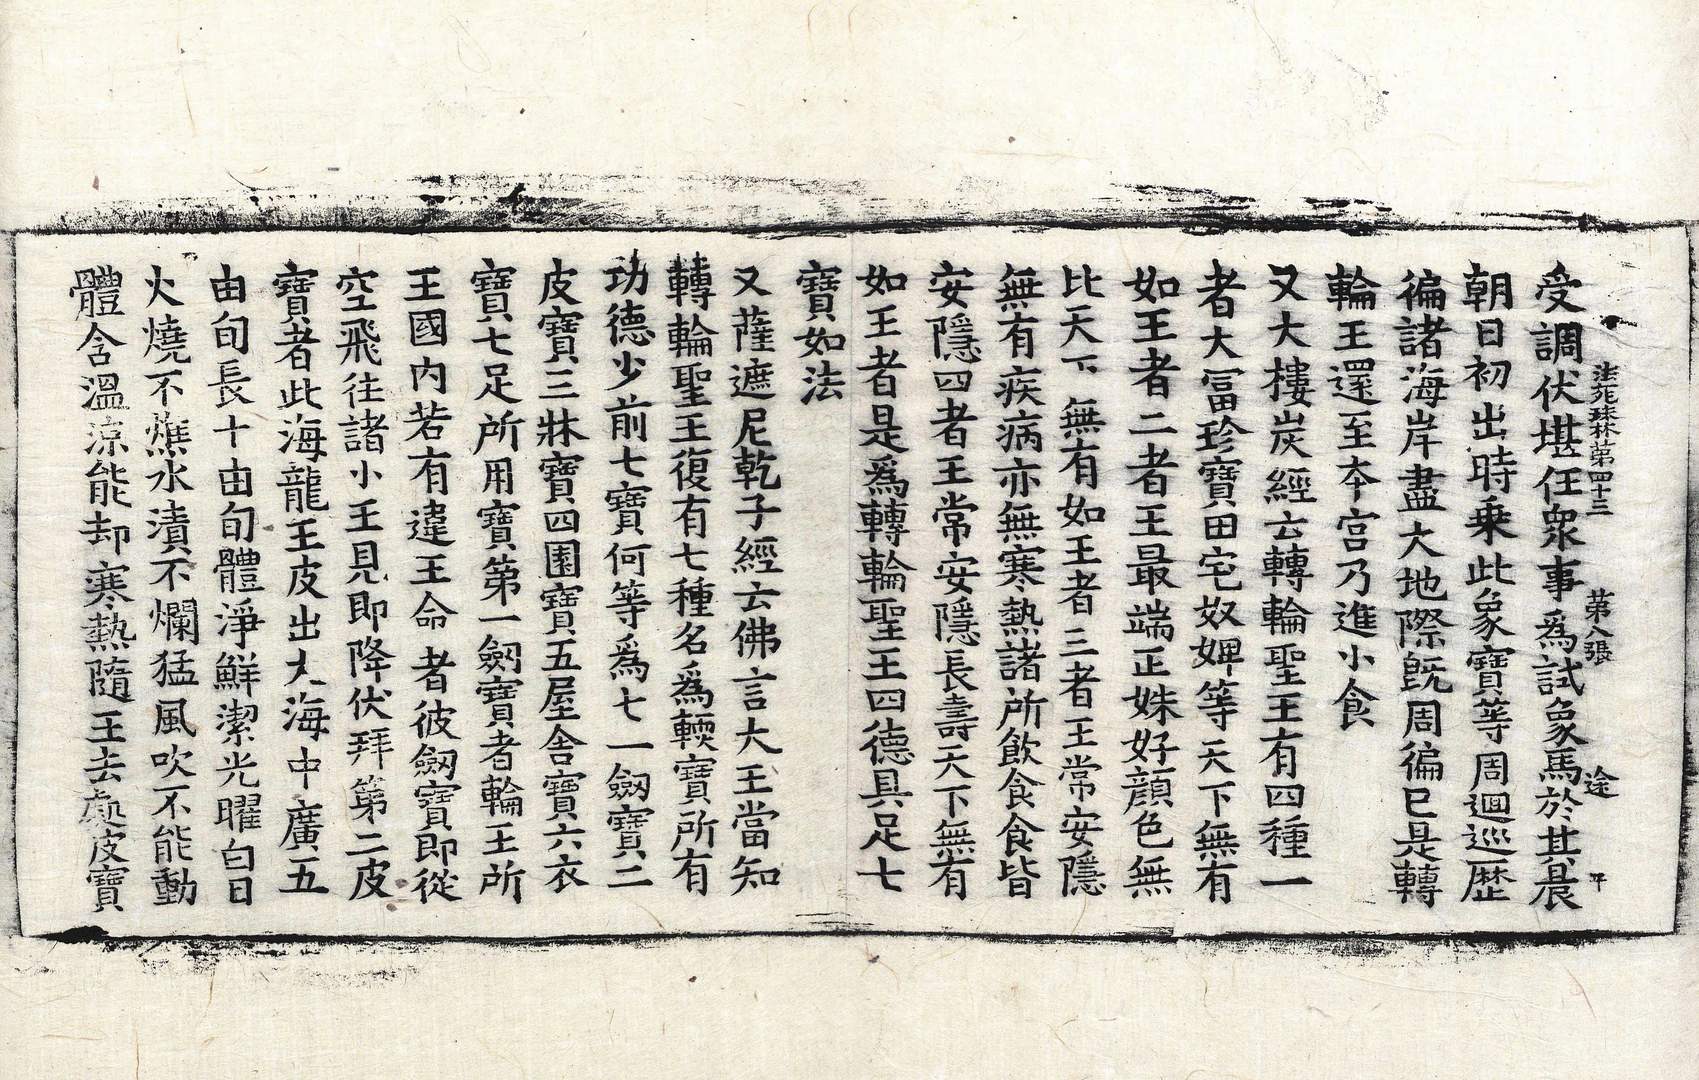 法苑珠林第四十三 第八張 途
受調伏堪任衆事爲試象馬於其晨
朝日初出時乗此象寶等周迴巡歴
徧諸海岸盡大地際旣周徧已是轉
輪王還至本宮乃進小食
又大樓炭經云轉輪聖王有四種一
者大冨珍寶田宅奴婢等天下無有
如王者二者王最端正姝好顔色無
比天下無有如王者三者王常安隱
無有疾病亦無寒熱諸所飲食食皆
安隱四者王常安隱長壽天下無有
如王者是爲轉輪聖王四德具足七
寶如法
又薩遮尼乾子經云佛言大王當知
轉輪聖王復有七種名爲輭寶所有
功德少前七寶何等爲七一劒寶二
皮寶三牀寶四園寶五屋舎寶六衣
寶七足所用寶第一劒寶者輪王所
王國内若有違王命者彼劒寶即從
空飛往諸小王見即降伏拜第二皮
寶者此海龍王皮出大海中廣五
由旬長十由旬體淨鮮潔光曜白日
火燒不燋水漬不爛猛風吹不能動
體含溫涼能却寒熱隨王去處皮寶